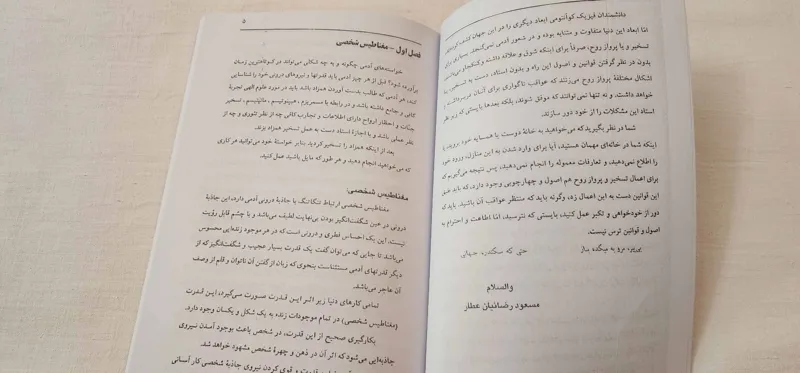 دانشمندان فیزیک کوآنتومی ابعاد دیگری را در این جهان کشف کرده‌اند
امّا ابعاد این دنیا متفاوت و متشابه بوده و در شعور آدمی نمی‌گنجد. بسیاری برای
تسخیر و یا پرواز روح، صرفاً برای اینکه شوق و علاقه داشته و کنجکاو می‌باشند
بدون در نظر گرفتن قوانین و اصول این راه و بدون استاد، دست به تسخیر یا
اشکال مختلفۀ پرواز روح می‌زنند که عواقب ناگواری برای آنان دربر داشته و
خواهد داشت. و نه تنها نمی‌توانند که موفق شوند، بلکه بعدها بایستی که زیر نظر
استاد این مشکلات را از خود دور سازند.
شما در نظر بگیرید که می‌خواهید به خانۀ دوست یا همسایه خود بروید، یا
اینکه شما در خانه‌ای مهمان هستید، آیا برای وارد شدن به این منازل، ورود خود
را اطلاع نمی‌دهید، و تعارفات معموله را انجام نمی‌دهید، پس نتیجه می‌گیریم که
برای اعمال تسخیر و پرواز روح هم اصول و چهارچوبی وجود دارد، که باید طبق
این قوانین دست به این اعمال زد، وگرنه باید که منتظر عواقب آن باشید. باید که
دور از خودخواهی و تکبر عمل کنید، بایستی که نترسید، امّا اطاعت و احترام به
اصول و قوانین ترس نیست.
بی‌پیر مرو به میکده بساز
حتی که سکندر جهانی
والسلام
مسعود رضائیان عطار
۵
فصل اول – مغناطیس شخصی
خواسته‌های آدمی چگونه و به چه شکلی می‌تواند در کوتاهترین زمان
برآورده شود؟ قبل از هر چیز آدمی باید قدرتها و نیروهای درونی خود را شناسایی
کند، هر آدمی که طالب بدست آوردن همزاد باشد باید در مورد علوم الهی تجربۀ
کافی و جامع داشته باشد و در رابطه با مسمریزم، هیپنوتیزم، مانیتیسم، تسخیر
جنّات و احضار ارواح دارای اطلاعات و تجارب کافی چه از نظر تئوری و چه از
نظر عملی باشد و با اجازۀ استاد دست به عمل تسخیر همزاد بزند.
بعد از اینکه همزاد را تسخیر کردید بنابر خواستۀ خود می‌توانید هر کاری
که می‌خواهید انجام دهید و هر طور که مایل باشید عمل کنید.
مغناطیس شخصی:
مغناطیس شخصی ارتباط تنگاتنگ با جاذبۀ درونی آدمی دارد، این جاذبۀ
درونی در عین شگفت‌انگیز بودن بی‌نهایت لطیف می‌باشد و با چشم قابل رؤیت
نیست. این یک احساس فطری و درونی است که در هر موجود زنده‌ایی محسوس
می‌باشد تا جایی که می‌توان گفت یک قدرت بسیار عجیب و شگفت‌انگیز که از
دیگر قدرتهای آدمی مستثناست بنحوی که زبان از گفتن آن ناتوان و قلم از وصف
آن عاجز می‌باشد.
تمامی کارهای دنیا زیر اثر این قدرت صورت می‌گیرد، این قدرت
(مغناطیس شخصی) در تمام موجودات زنده به یک شکل و یکسان وجود دارد.
بکارگیری صحیح از این قدرت، در شخص باعث بوجود آمدن نیروی
جاذبه‌ایی می‌شود که اثر آن در ذهن و چهرۀ شخص مشهود خواهد شد.
قدرت و قوی کردن نیروی جاذبۀ شخصی کار آسانی